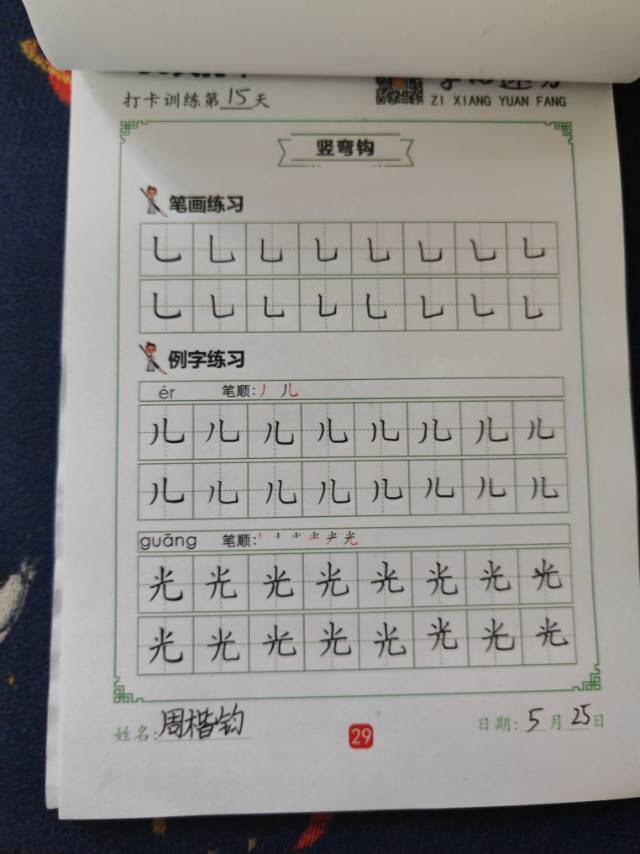 打卡训练第15天
ZI XIANG YUAN FANG
竖弯钩
笔画练习
乚乚乚乚乚乚乚乚
乚乚乚乚乚乚乚乚
例字练习
ér 笔顺:丿 儿
儿儿儿儿儿儿儿儿
儿儿儿儿儿儿儿儿
guāng 笔顺:
光光光光光光光光
光光光光光光光光
姓名:周楷钧
29
日期:5月25日